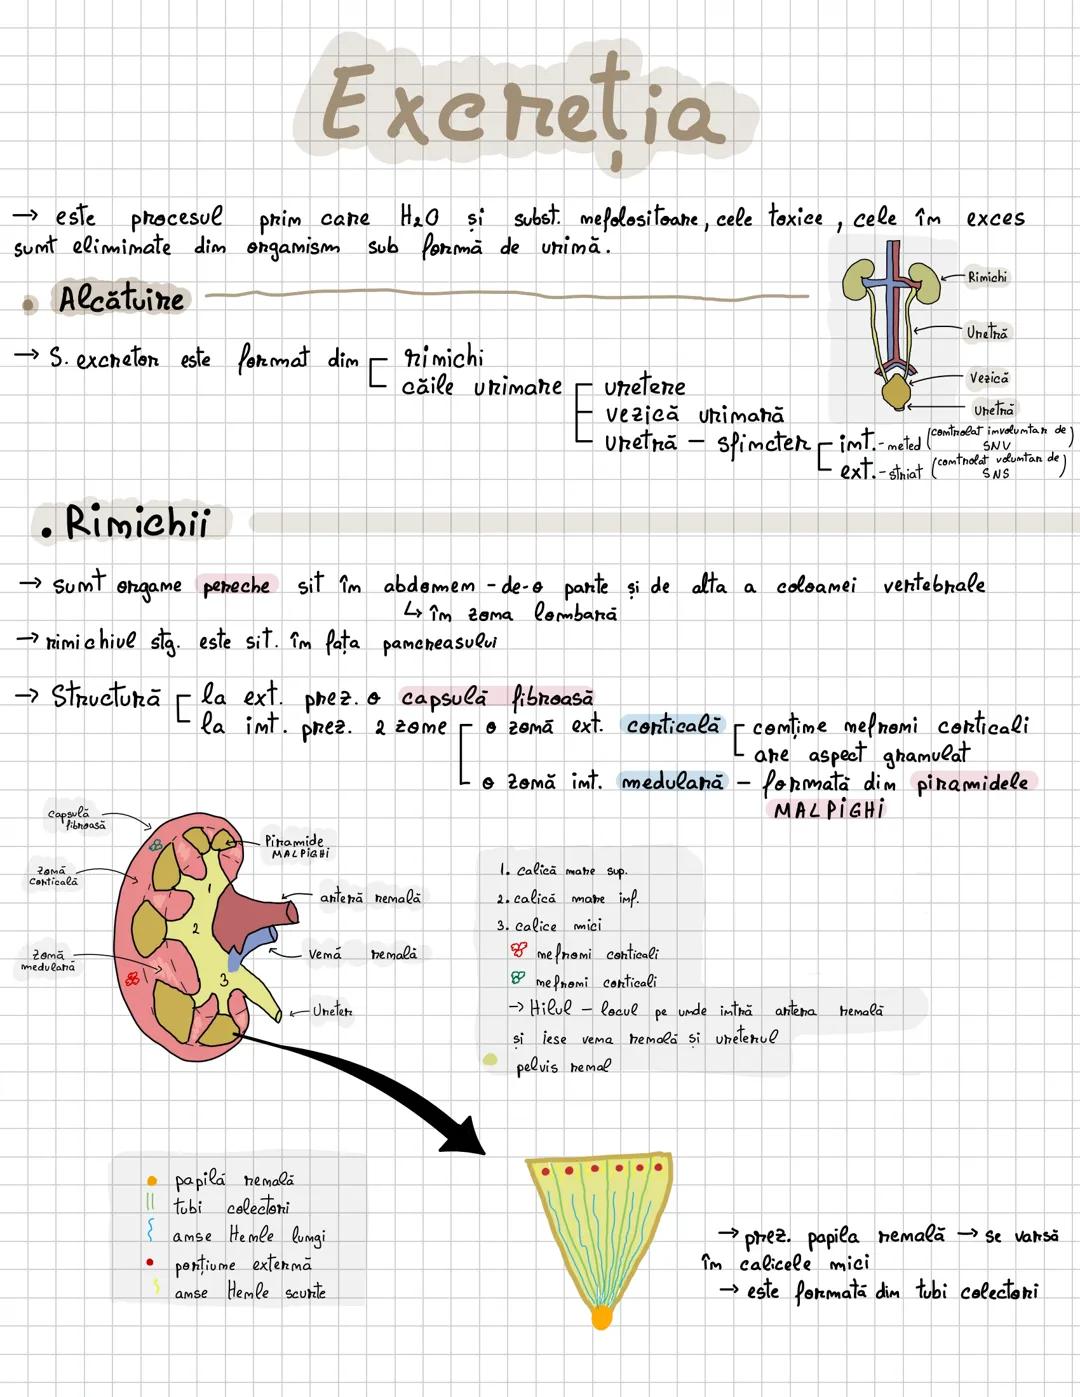 Excreția
→ este procesul prin care H₂O și subst. nefolositoare, cele toxice, cele în exces
sunt eliminate din organism sub formă de urină.
• Alcătuire
Rinichi
Uretră
Vezică
uretră
→ S. excretor este format din rinichi
căile urinare uretere
vezică urinară
uretră – sfincter int. - neted (controlat involuntar de SNV)
ext. - striat (controlat voluntar de SNS)
• Rinichii
→ sunt organe pereche sit în abdomen - de-o parte și de alta a coloanei vertebrale
↳ în zona lombară
→ rinichiul stg. este sit. în fața pancreasului
→ Structură la ext. prez. o capsulă fibroasă
la int. prez. 2 zone o zonă ext. corticală conține nefroni corticali
are aspect granulat
o zonă int. medulară – formată din piramidele
MALPIGHI
Capsulă
fibroasă
zonă
Corticală
zonă
medulară
Piramide
MALPIGHI
arteră renală
Venă renală
Ureter
1
2
3
1. calică mare sup.
2. calică mare inf.
3. calice mici
nefroni corticali
nefroni corticali
→ Hilul – locul pe unde intră artera renală
și iese vena renală și ureterul
pelvis renal
papilă renală
tubi colectori
anse Henle lungi
porțiune externă
anse Henle scurte
→ prez. papila renală → se varsă
în calicele mici
→ este formată din tubi colectori